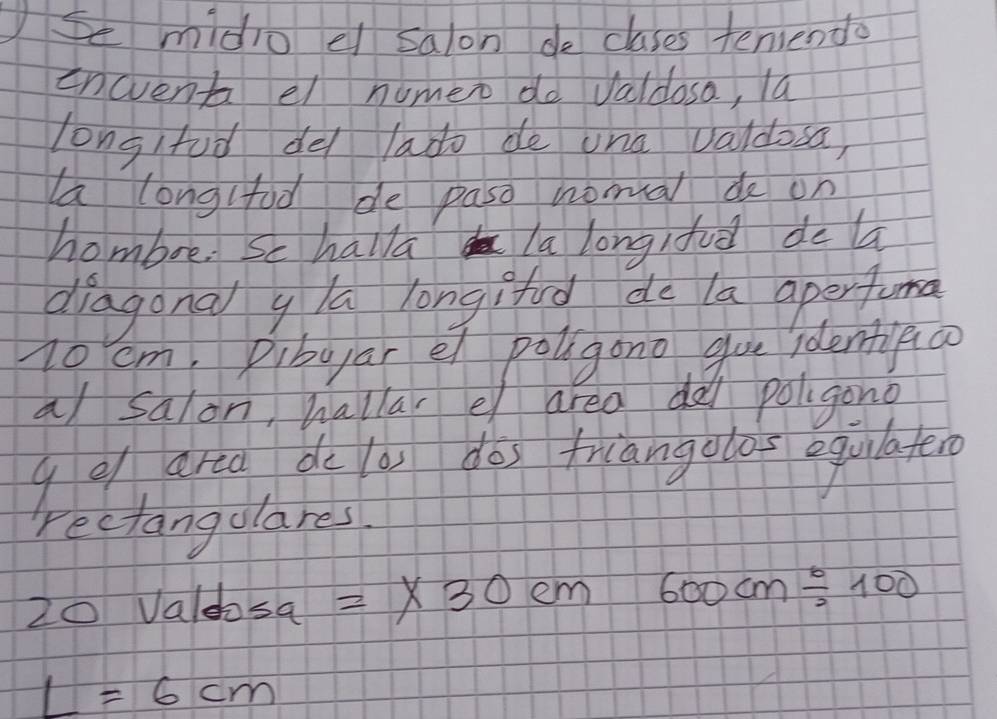 ) Se midio el salon de clases teniendo
encuenta el numero de Valdosa, la
longitud del lado de una valdosa,
la longitud de paso normal de un
hombre. Se halla la longitud de la
diagonal y la longitud de la apertuma
10 cm. Dibujar el poligono que identifico
al salon, hallar el area del poligono
y el area de los dos triangulos equilatero
rectangulares.
20 Valdosa = X 30 cm 600 cm ÷ 100
L = 6 cm